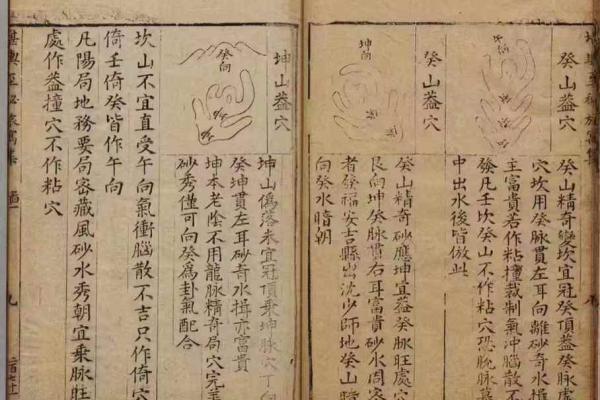 癸山蓋穴
癸山精奇變坎宜冠癸頂蓋癸脉處
穴坎用癸脉貫左耳向離砂奇水揖
主富貴若作粘撞裁制氣冲腦散不
發凡壬坎癸山不作粘穴恐脫脉
中出水後皆倣此
癸山蓋穴
坤向
癸山精奇砂應坤宜蓋癸脉旺處穴
艮向坤癸脉貫右耳富貴砂水周
者癸福安吉縣出沈少師地癸山
向癸水暗朝
坤山蓋穴
癸向
坤山偽落未宜冠頂乘坤脉穴丁向
癸坤貫左耳砂奇水揖亦富貴
坤本老陰不用龍脉精奇局穴完美
砂秀僅可向癸為卦氣配合
坎山不宜直受午向氣衝腦散不吉只作倚穴
倚壬倚癸皆作午向
凡陽局地務要局容藏風砂水秀朝宜乘脉旺
處作蓋撞穴不作粘穴
九